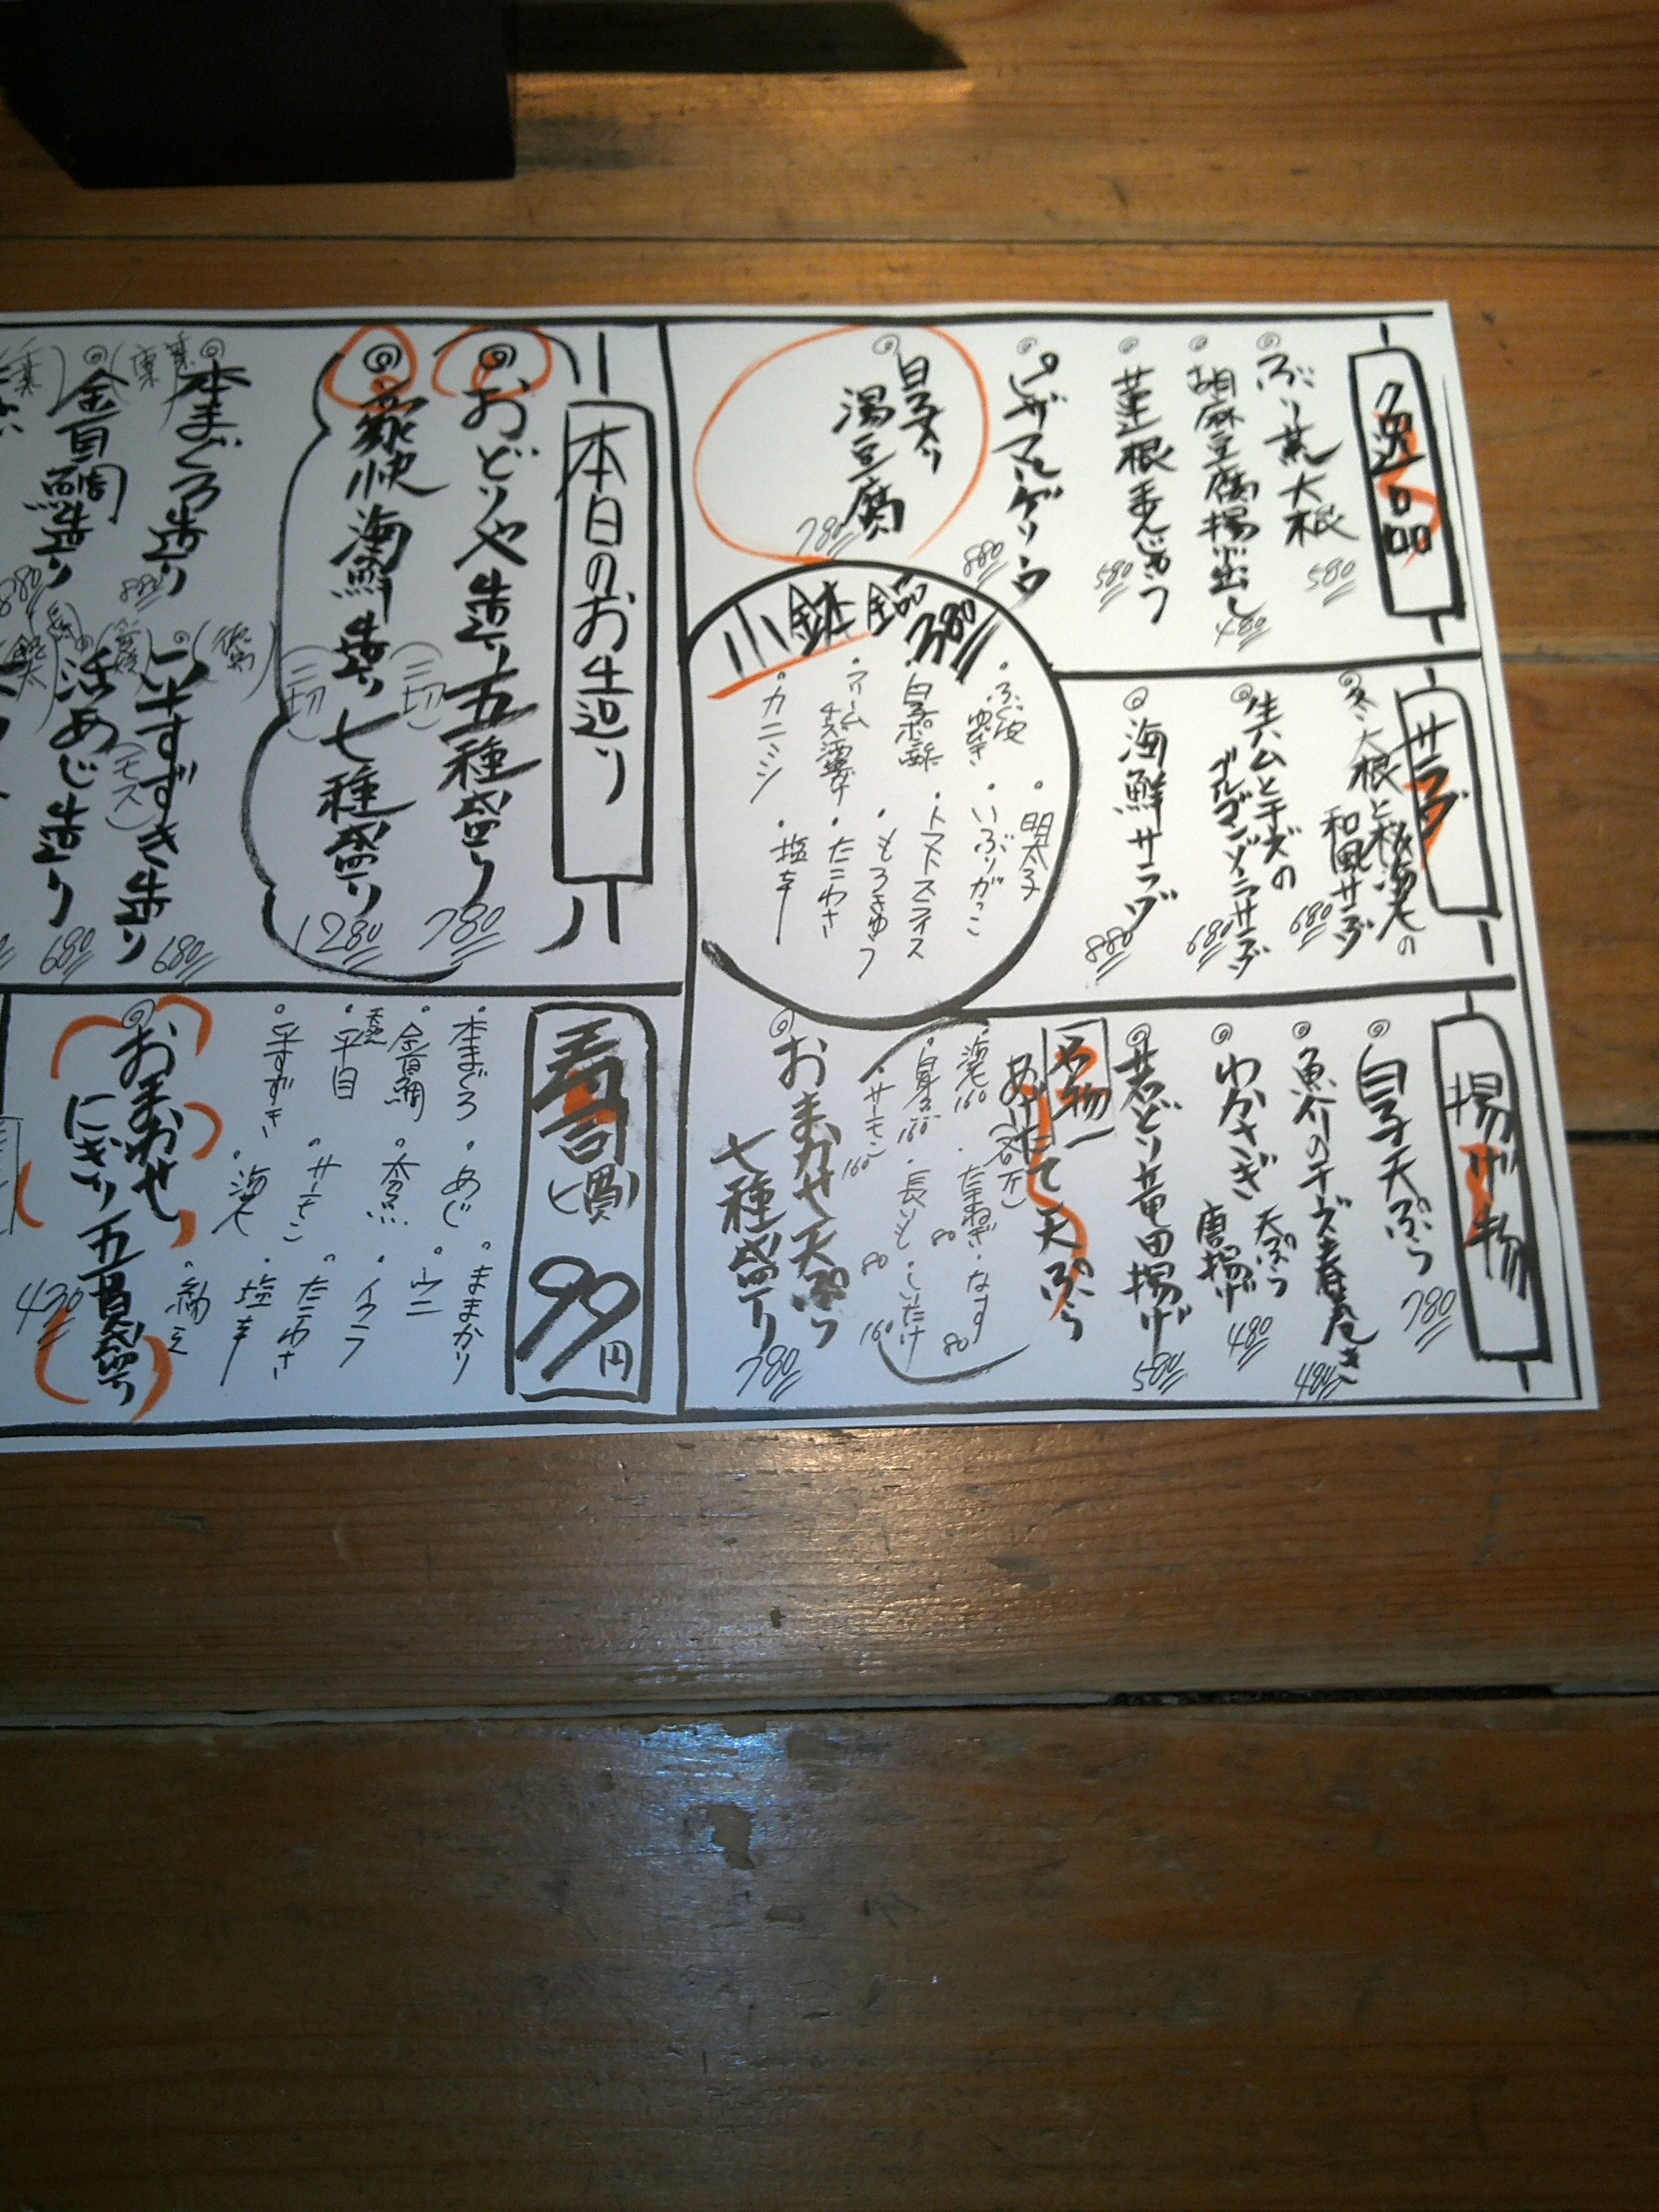 逸品
ぶり煮大根
580
胡麻豆腐揚げ出し
480
蓮根まんじゅう
580
ピザマルゲリータ
880
白子入り
湯豆腐
780
小鉢全品380
・ぶり皮ゆびき
・白子ポン酢
・クリームチーズ酒盗
・カニミソ
・明太子
・いぶりがっこ
・トマトスライス
・もろきゅう
・たこわさ
・塩辛
サラダ
大根と桜海老の
和風サラダ
680
生ハムとチーズの
ゴルゴンゾーラサラダ
680
海鮮サラダ
880
揚げ物
白子天ぷら
780
魚介のチーズ春巻き
480
わかさぎ
天ぷら
唐揚げ
480
若どり竜田揚げ
580
名物
あげたて天ぷら
・海老160
・白身魚160
・サーモン160
・たまねぎ80
・長いも80
・なす80
・しいたけ160
おまかせ天ぷら
七種盛り
780
本日のお造り
おどりや造り五種盛り
(二切)
780
豪快海鮮造り七種盛り
(二切)
1280
本まぐろ造り
880
平すずき造り
680
金目鯛造り
880
(千葉)
活あじ造り
680
寿司一貫99円
・本まぐろ
・金目鯛
・平目
・平すずき
・あじ
・サーモン
・海老
・ままかり
・ウニ
・イクラ
・たこわさ
・塩辛
おまかせ
にぎり五貫盛り
430